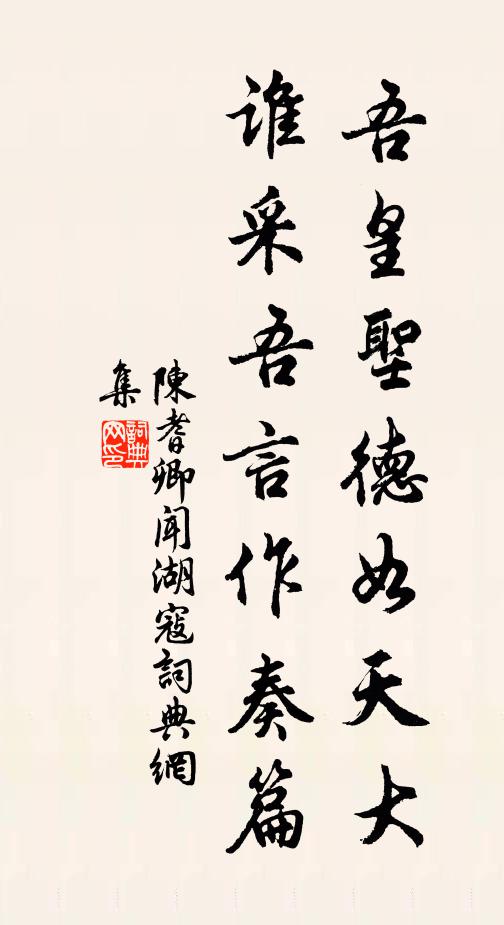 吾皇聖德如天大
谁采吾言作奏篇
陳耆卿聞湖寇詞典網
集
詞典网印